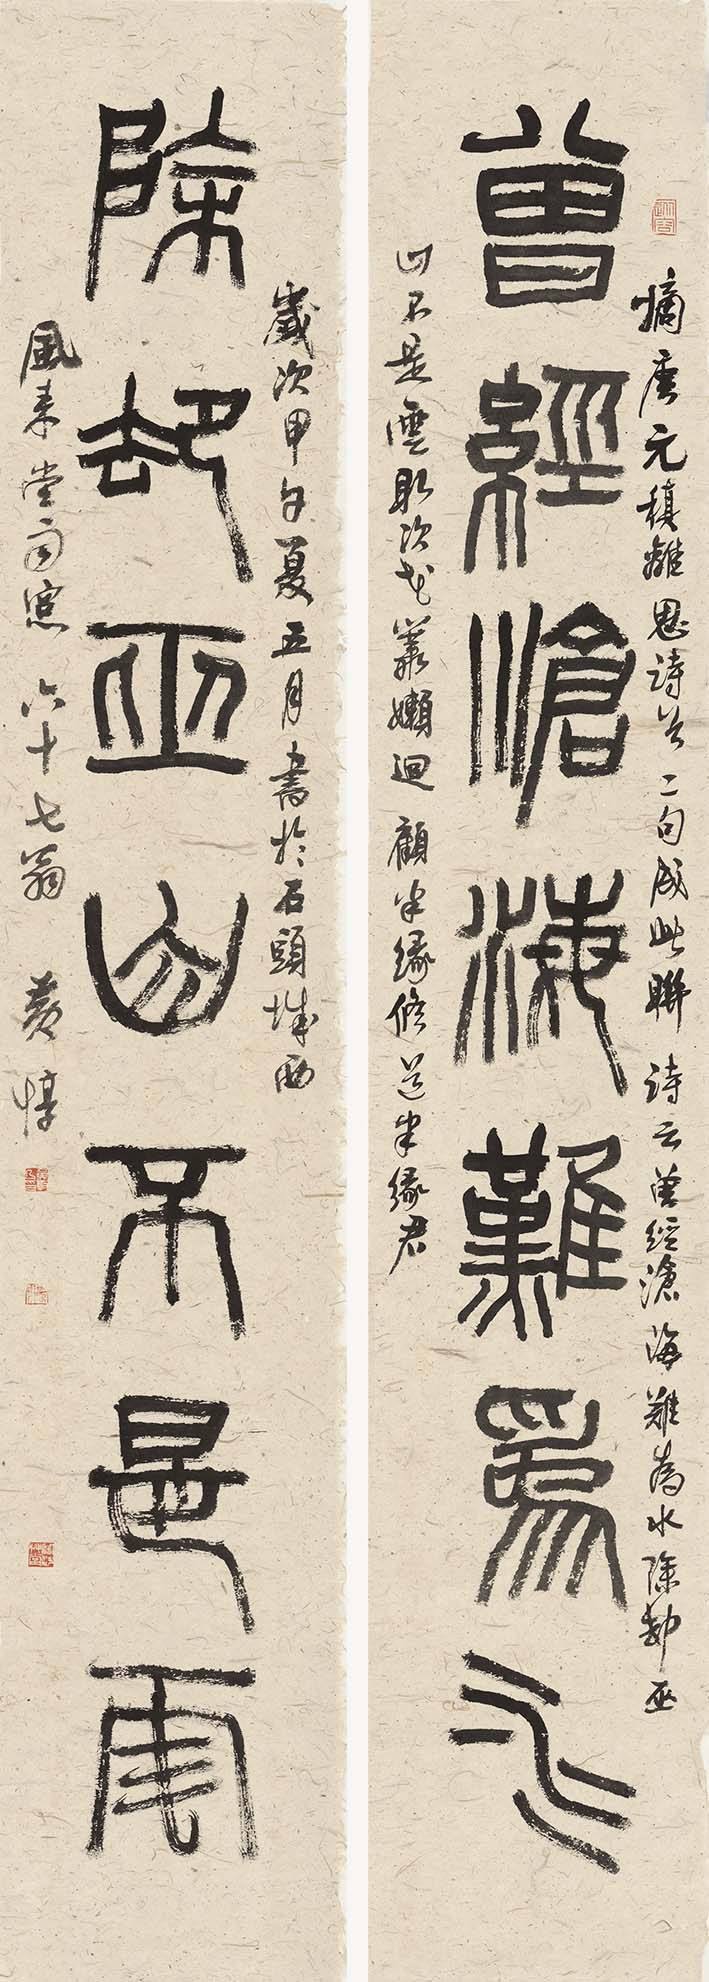 曾經滄海難爲水
摘唐元稹離思詩首二句成此聯 詩云曾經滄海難為水除却巫
山不是雲取次花叢嬾迴顧半緣修道半緣君
除却巫山不是雲
歲次甲午夏五月書於石頭城西
風來堂南窓六十七翁 黄惇